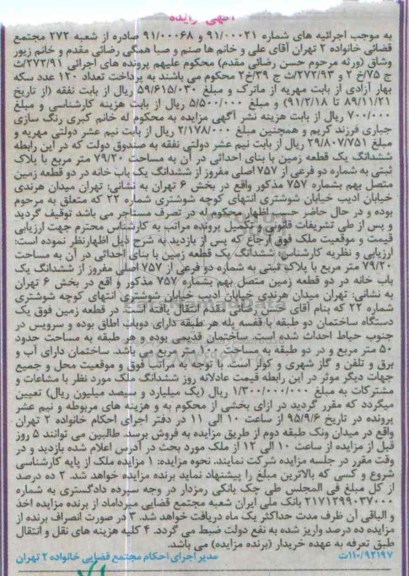 آگهی مزایده
به موجب اجرائیه های شماره ۹۱/۰۰۰۲۱ و ۹۱/۰۰۰۶۸ صادره از شعبه ۲۷۲ مجتمع
قضائی خانواده ۲ تهران آقای علی و خانم ها صنم و صبا همگی رضائی مقدم و خانم زیور
وشاق (ورثه مرحوم حسن رضائی مقدم) محکوم علیهم پرونده های اجرائی ۲۷۲/۹۱/ث
ج ۷۵/خ ۲ و ۲۷۲/۹۳/ث ج ۳۹/خ۲ محکوم می باشند به پرداخت تعداد ۱۲۰ عدد سکه
بهار آزادی از بابت مهریه از ماترک و مبلغ ۵۹/۶۱۵/۰۳۰ ریال از بابت نفقه (از تاریخ
۸۹/۱۱/۲۱ تا ۹۱/۲/۱۸) و مبلغ ۵/۵۰۰/۰۰۰ ریال از بابت هزینه کارشناسی و مبلغ
۷۰۰/۰۰۰ ریال از بابت هزینه نشر آگهی مزایده به محکوم له خانم کبری رنگ سازی
جباری فرزند کریم و همچنین مبلغ ۲/۱۷۸/۰۰۰ ریال از بابت نیم عشر دولتی مهریه و
مبلغ ۲۹/۸۰۷/۷۵۱ ریال از بابت نیم عشر دولتی نفقه به صندوق دولت که در این رابطه
ششدانگ یک قطعه زمین با بنای احداثی در آن به مساحت ۷۹/۲۰ متر مربع با پلاک
ثبتی به شماره دو فرعی از ۷۵۷ اصلی مفروز از ششدانگ یک باب خانه در دو قطعه زمین
متصل بهم بشماره ۷۵۷ مذکور واقع در بخش ۶ تهران به نشانی: تهران میدان هرندی
خیابان ادیب خیابان شوشتری انتهای کوچه شوشتری شماره ۲۲ که متعلق به مرحوم
بوده و در حال حاضر حسب اظهار محکوم له در تصرف مستاجر می باشد توقیف گردید
و پس از طی تشریفات قانونی و تکمیل پرونده مراتب به کارشناس محترم جهت ارزیابی
قیمت و موقعیت ملک فوق ارجاع که پس از بازدید به شرح ذیل اظهارنظر نموده است:
ارزیابی و نظریه کارشناس: ششدانگ یک قطعه زمین با بنای احداثی در آن به مساحت
۷۹/۲۰ متر مربع با پلاک ثبتی به شماره دو فرعی از ۷۵۷ اصلی مفروز از ششدانگ یک
باب خانه در دو قطعه زمین متصل بهم بشماره ۷۵۷ مذکور و اقع در بخش ۶ تهران
به نشانی: تهران میدان هرندی خیابان ادیب خیابان شوشتری انتهای کوچه شوشتری
شماره ۲۲ که بنام آقای حسن رضائی مقدم انتقال یافته است. در قطعه زمین فوق یک
دستگاه ساختمان دو طبقه با قفسه پله هر طبقه دارای دوباب اطاق بوده و سرویس در
جنوب حیاط احداث شده است. ساختمان قدیمی بوده و هر طبقه به مساحت حدود
۵۰ متر مربع و در دو طبقه به مساحت ۱۰۰ متر مربع می باشد. ساختمان دارای آب و
برق و تلفن و گاز شهری و کولر است. با توجه به مراتب فوق و موقعیت محل و جمیع
جهات دیگر موثر در این رابطه قیمت عادلانه روز ششدانگ ملک مورد نظر با مشاعات و
مشترکات به مبلغ ۱/۳۰۰/۰۰۰/۰۰۰ ریال (یک میلیارد و سیصد میلیون ریال) تعیین
میگردد که مقرر گردید در ازای بخشی از محکوم به و هزینه های مربوطه و نیم عشر
پرونده در تاریخ ۹۵/۹/۶ از ساعت ۱۰ الی ۱۱ در دفتر اجرای احکام خانواده ۲ تهران
واقع در میدان ونک طبقه دوم از طریق مزایده به فروش برسد. طالبین می توانند ۵ روز
قبل از مزایده از ساعت ۱۰ الی ۱۲ از ملک مورد بحث در آدرس اعلام شده بازدید و در
وقت مقرر در جلسه مزایده شرکت نمایند. نحوه مزایده: ۱ مزایده ملک از پایه کارشناسی
شروع و کسی که بالاترین مبلغ را پیشنهاد نماید برنده مزایده خواهد شد. ۲ ده درصد
از کل مبلغ فی المجلس طی چک بانکی رمزدار در وجه سپرده دادگستری به شماره
۲۱۷۱۲۹۹۰۳۷۰۰۰ بانک ملی ایران شعبه مجتمع قضایی میرداماد از برنده مزایده اخذ
و الباقی آن ظرف مدت حداکثر یک ماه دریافت خواهد شد. ۳ در صورت انصراف برنده از
مزایده ده درصد واریز شده به نفع دولت ضبط می گردد. ۴ کلیه هزینه های نقل و انتقال
طبق تعرفه به عهده خریدار (برنده مزایده) می باشد.
۱۱۰/۹۲۱۹۷/ت مدیر اجرای احکام مجتمع قضایی خانواده ۲ تهران